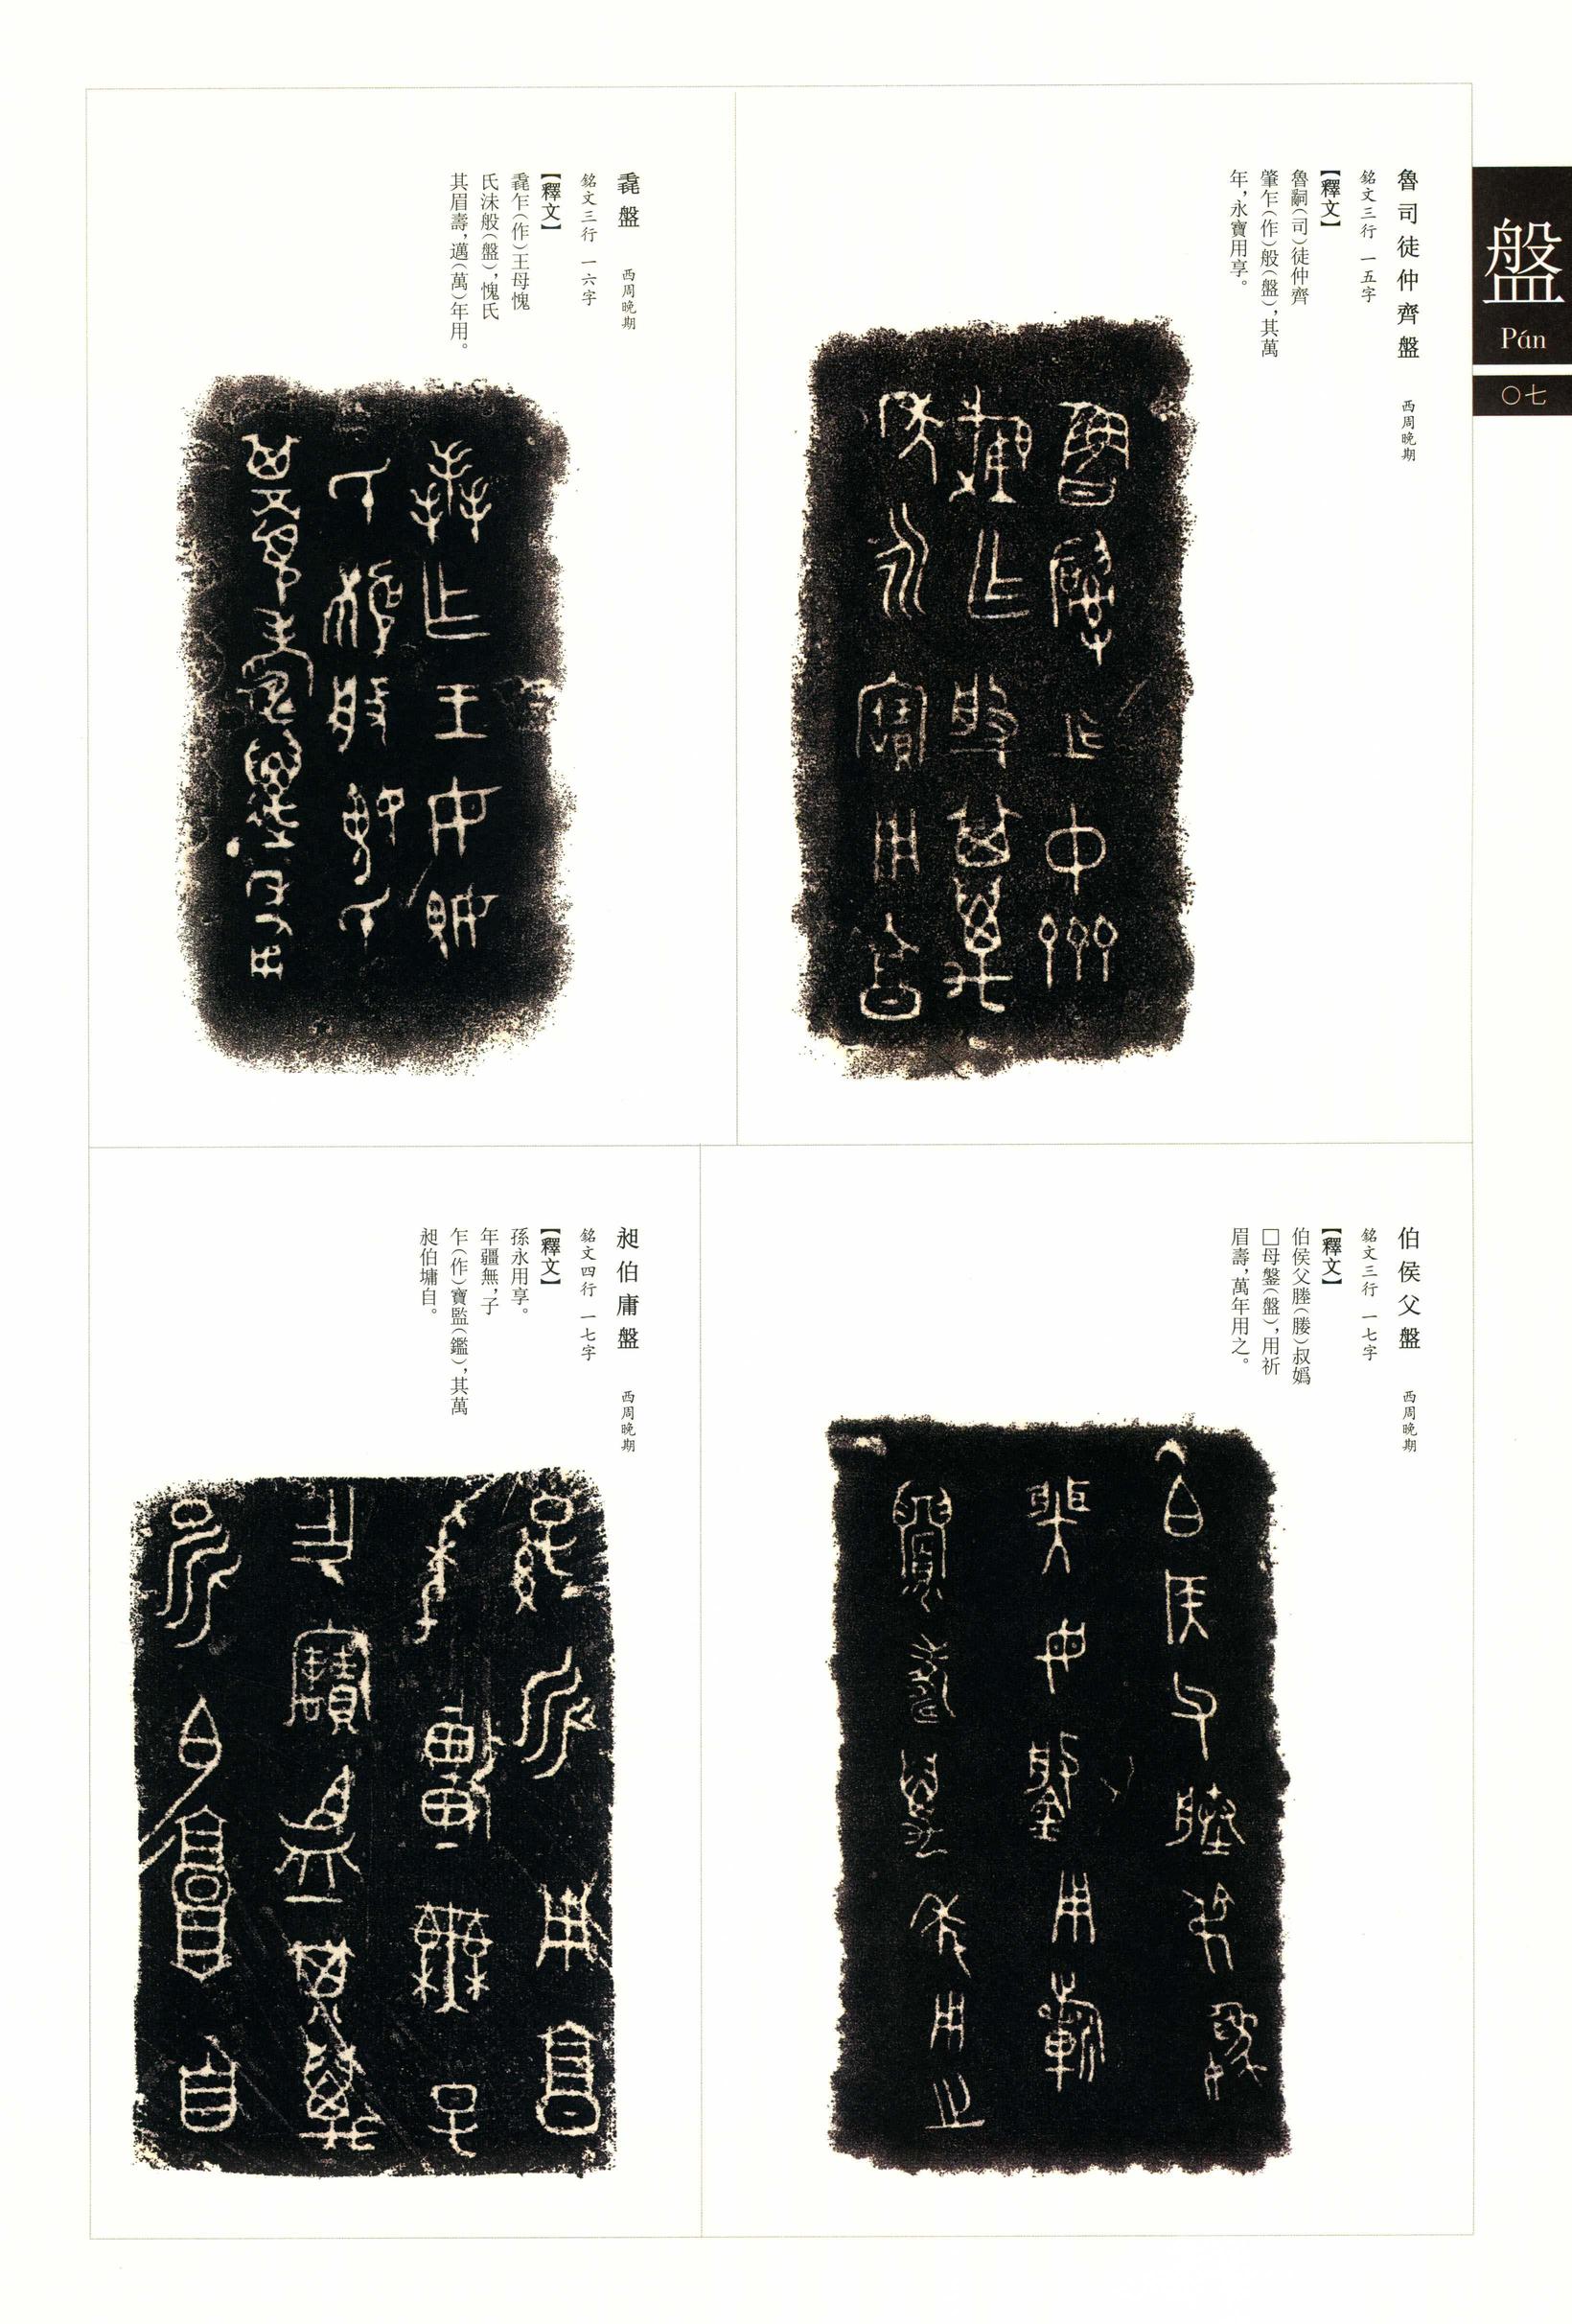 盤
Pán
〇七
魯司徒仲齊盤 西周晚期
銘文三行 一五字
【釋文】
魯嗣(司)徒仲齊
肇乍(作)般(盤),其萬
年,永寶用享。
毳盤 西周晚期
銘文三行 一六字
【釋文】
毳乍(作)王母媿
氏沬般(盤),媿氏
其眉壽,邁(萬)年用。
伯侯父盤 西周晚期
銘文三行 一七字
【釋文】
伯侯父塍(媵)叔媯
□母鎜(盤),用祈
眉壽,萬年用之。
昶伯庸盤 西周晚期
銘文四行 一七字
【釋文】
孫永用享。
年疆無,子
乍(作)寶監(鑑),其萬
昶伯墉自。